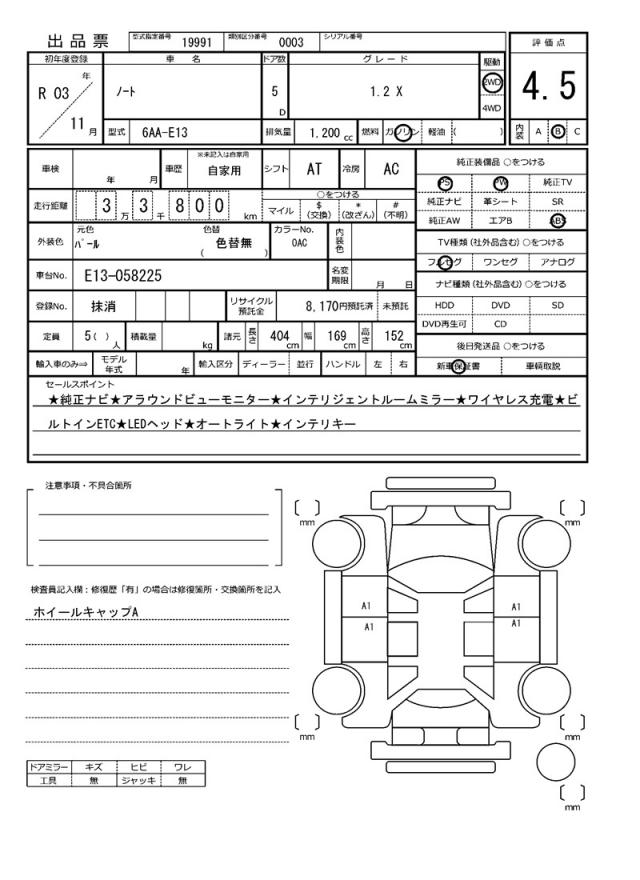 出品票 型式指定番号 19991 類別区分番号 0003 シリアル番号
評価点
初年度登録 車名 ドア数 グレード 駆動
R 03 年 ノート 5 D 1.2 X 2WD 4WD 4.5
11 月 型式 6AA-E13 排気量 1.200 cc 燃料 ガソリン 軽油 ( ) 内装 A B C
車検 年 月 車歴 ※未記入は自家用 自家用 シフト AT 冷房 AC
純正装備品 ○をつける
PS PW 純正TV
純正ナビ 革シート SR
純正AW エアB ABS
走行距離 3 万 3 千 8 0 0 km
○をつける
マイル $ (交換) * (改ざん) # (不明)
外装色 元色 パール 色替 ( 色替無 ) カラーNo. 0AC 内装色
TV種類 (社外品含む) ○をつける
フルセグ ワンセグ アナログ
車台No. E13-058225 名変期限 月 日
ナビ種類 (社外品含む) ○をつける
HDD DVD SD
DVD再生可 CD
登録No. 抹消 リサイクル預託金 8,170円預託済 未預託
定員 5( ) 人 積載量 kg 諸元 長さ 404 cm 幅 169 cm 高さ 152 cm
後日発送品 ○をつける
新車保証書 車輌取説
輸入車のみ⇒ モデル年式 年 輸入区分 ディーラー 並行 ハンドル 左 右
セールスポイント
★純正ナビ★アラウンドビューモニター★インテリジェントルームミラー★ワイヤレス充電★ビ
ルトインETC★LEDヘッド★オートライト★インテリキー
注意事項・不具合箇所
mm mm
検査員記入欄：修復歴「有」の場合は修復箇所・交換箇所を記入
ホイールキャップA
A1 A1
A1 A1
mm mm
ドアミラー キズ ヒビ ワレ
工具 無 ジャッキ 無
mm